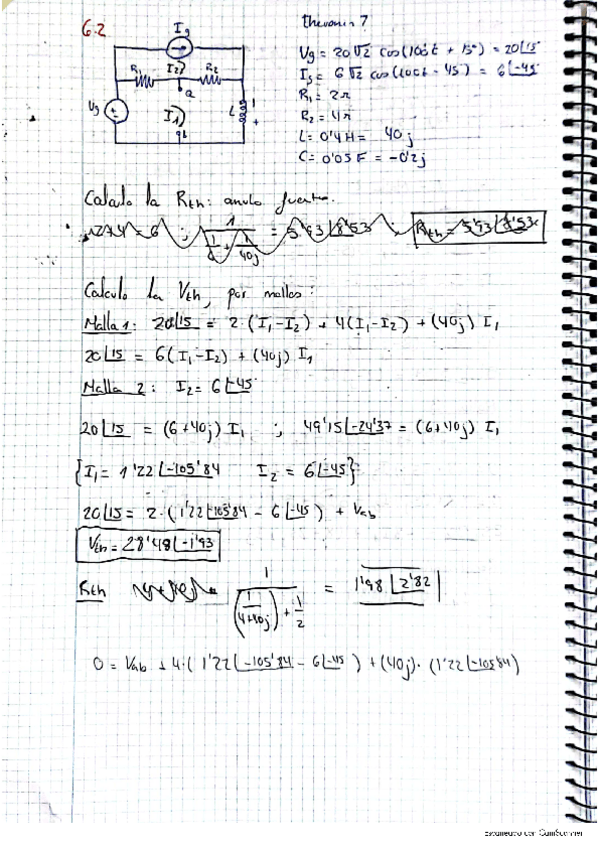 6.2
Ig
R₁ I₂) R₂
a
Vg I₁) L
b
thevenin 7
Vg = 20√2 cos(100t + 15º) = 20∠15
Is = 6√2 cos(100t - 45) = 6∠-45
R₁ = 2Ω
R₂ = 4Ω
L = 0'4 H = 40j
C = 0'05 F = -0'2j
Calculo la Rth: anulo fuentes.
= 6 ; 1/(1/6 + 1/40j) = 5'93∠8'53 ; Rth = 5'93∠8'53
Calculo la Vth, por mallas:
Malla 1: 20∠15 = 2·(I₁-I₂) + 4(I₁-I₂) + (40j) I₁
20∠15 = 6(I₁-I₂) + (40j) I₁
Malla 2: I₂ = 6∠-45
20∠15 = (6+40j) I₁ ; 49'15∠-24'37 = (6+40j) I₁
{I₁ = 1'22∠-105'84 I₂ = 6∠-45}
20∠15 = 2·(1'22∠-105'84 - 6∠-45) + Vab
Vth = 28'48∠-1'93
Rth 1/((1/(4+40j)) + 1/2) = 1'98∠2'82
0 = Vab + 4·(1'22∠-105'84 - 6∠-45) + (40j)·(1'22∠-105'84)
Escaneado con CamScanner